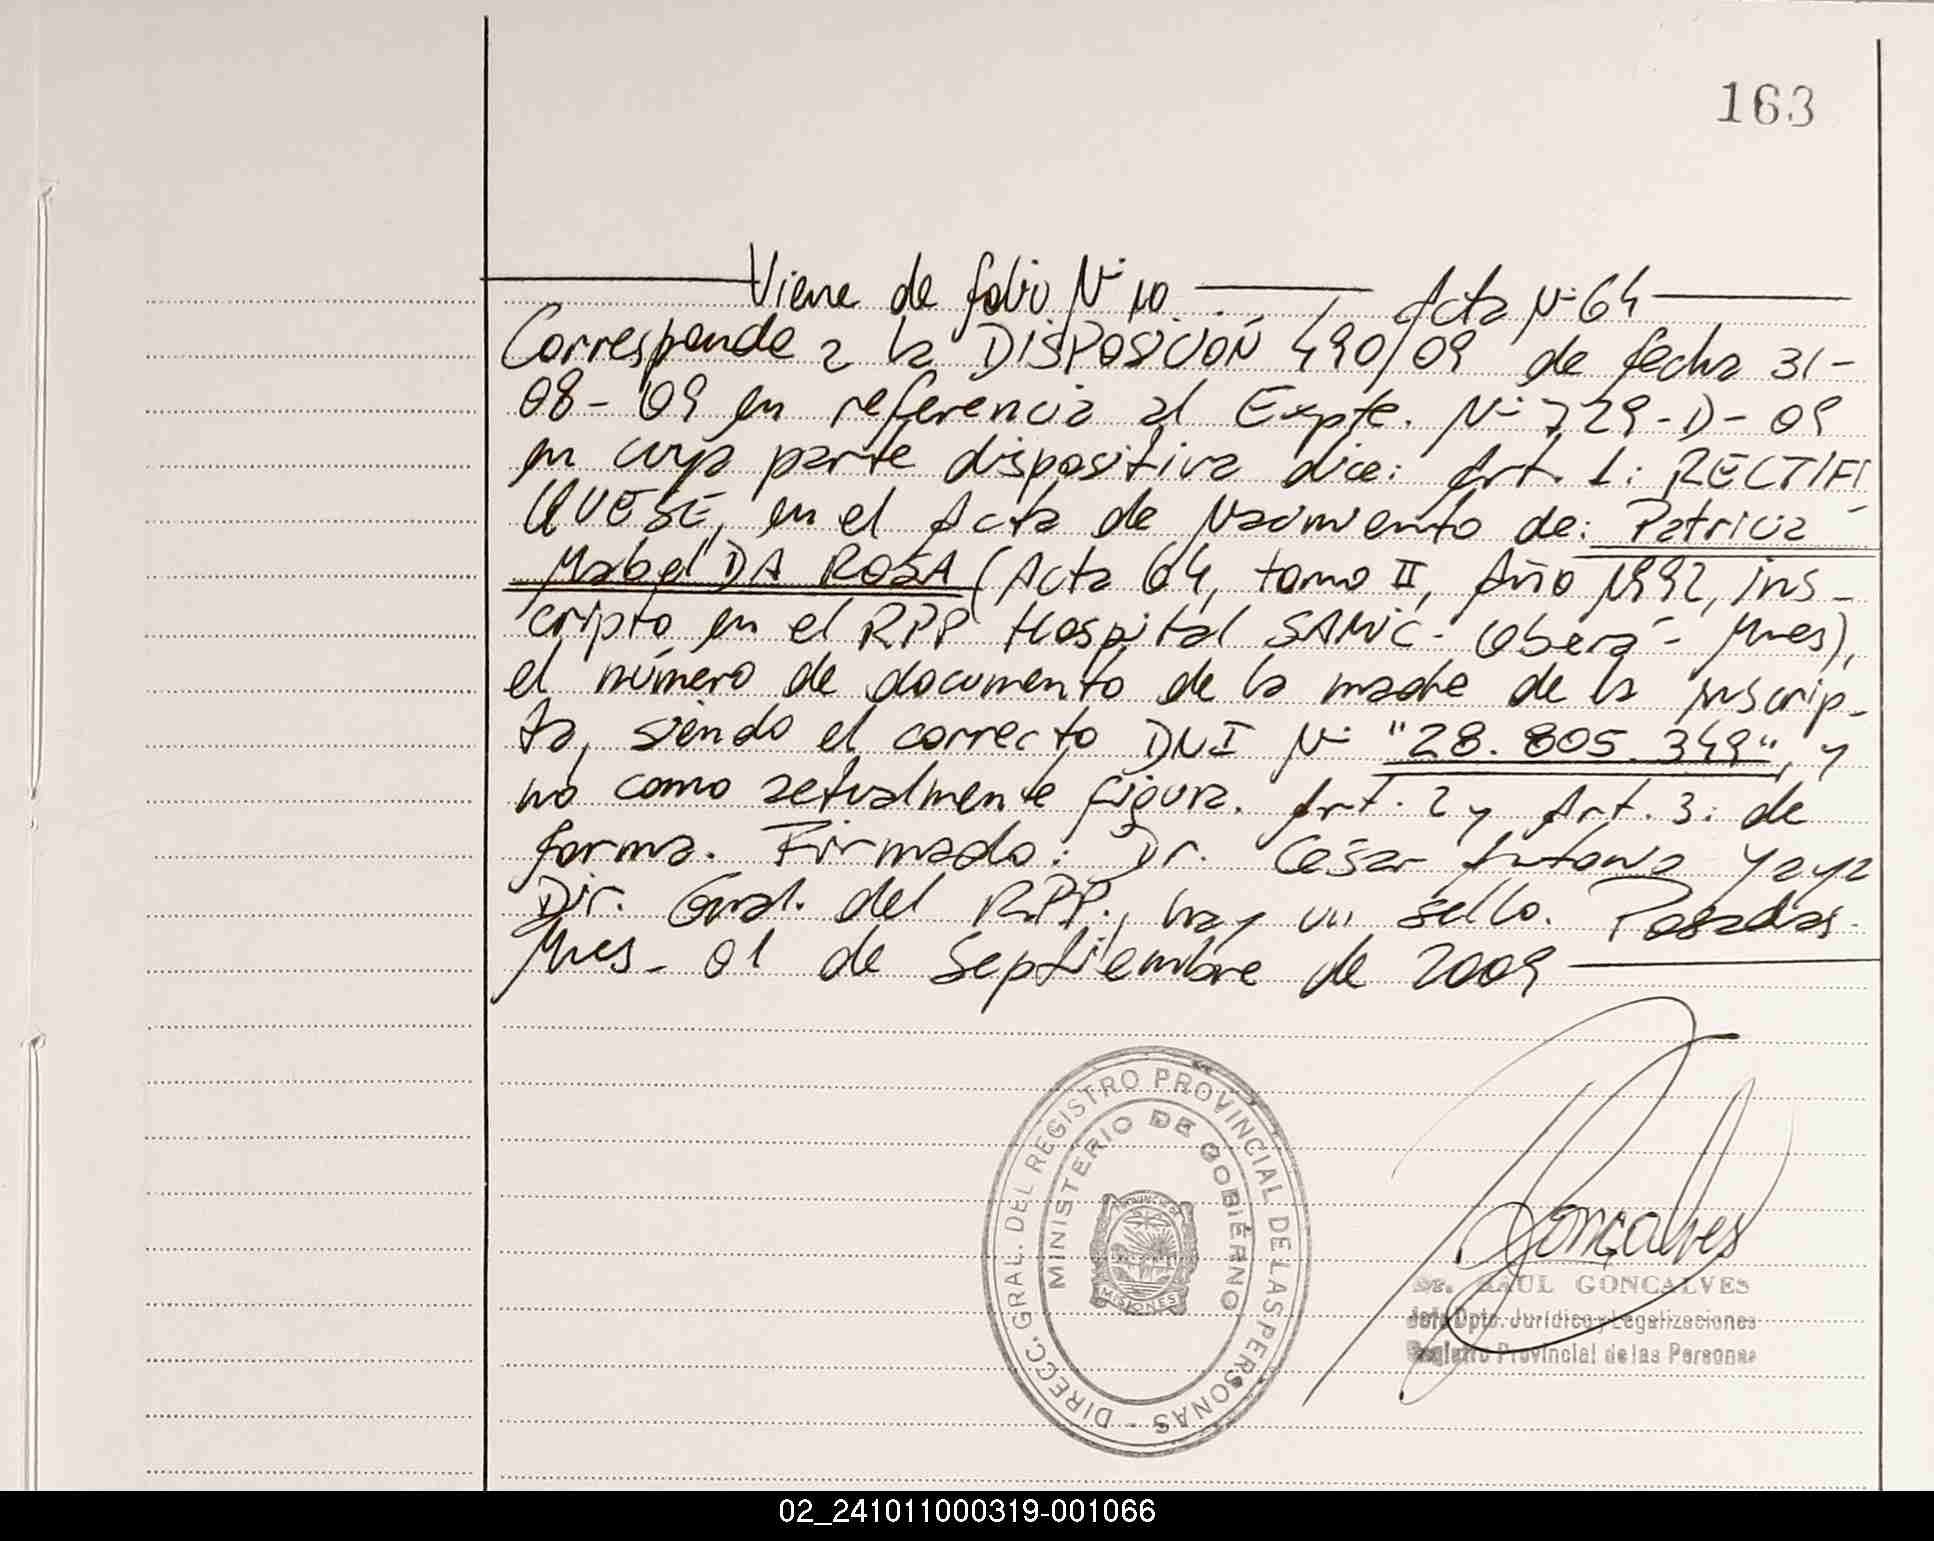 163
Viene de folio Nº 10 Acta Nº 64
Corresponde a la DISPOSICIÓN 490/09 de fecha 31-
08-09 en referencia al Expte. Nº 729-D-09
en cuya parte dispositiva dice: Art. 1: RECTIFI
QUESE, en el Acta de Nacimiento de: Patricia
Mabel DA ROSA (Acta 64, tomo II, Año 1992, ins-
cripto en el RPP Hospital SAMIC- Oberá- Mnes),
el número de documento de la madre de la inscrip-
ta, siendo el correcto DNI Nº "28.805.349", y
no como actualmente figura. Art. 2 y Art. 3: de
forma. Firmado: Dr. César Antonio Yaya
Dir. Gral. del RPP., hay un sello. Posadas-
Mnes- 01 de Septiembre de 2009
DIRECC. GRAL. DEL REGISTRO PROVINCIAL DE LAS PERSONAS -
MINISTERIO DE GOBIERNO
MISIONES
Gonçalves
Dr. RAUL GONCALVES
Jefe Dpto. Jurídico y Legalizaciones
Registro Provincial de las Personas
02_241011000319-001066